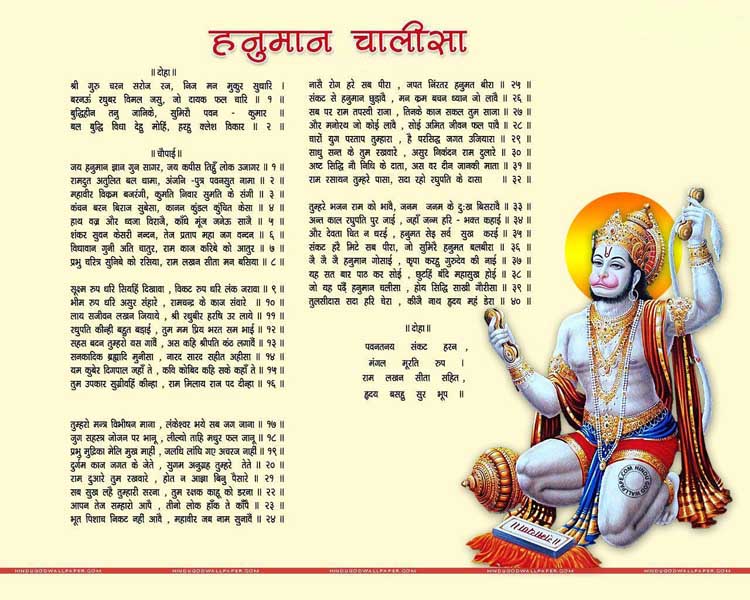 हनुमान चालीसा
॥ दोहा॥
श्री गुरु चरन सरोज रज, निज मन मुकुर सुधारि ।
बरनऊं रघुबर विमल जसु, जो दायक फल चारि ॥ १ ॥
बुद्धिहीन तनु जानिके, सुमिरौ पवन - कुमार ।
बल बुद्धि विद्या देहु मोहिं, हरहु क्लेश विकार ॥ २ ॥
॥ चौपाई॥
जय हनुमान ज्ञान गुन सागर, जय कपीस तिहुँ लोक उजागर ॥ १ ॥
रामदुत अतुलित बल धामा, अंजनि -पुत्र पवनसुत नामा ॥ २ ॥
महावीर विक्रम बजरंगी, कुमति निवार सुमति के संगी ॥ ३ ॥
कंचन बरन बिराज सुबेसा, कानन कुंडल कुंचित केसा ॥ ४ ॥
हाथ वज्र और ध्वजा विराजै, काँधे मूंज जनेऊ साजै ॥ ५ ॥
शंकर सुवन केसरी नन्दन, तेज प्रताप महा जग वन्दन ॥ ६ ॥
विधावान गुनी अति चातुर, राम काज करिबे को आतुर ॥ ७ ॥
प्रभु चरित्र सुनिबे को रसिया, राम लखन सीता मन बसिया ॥ ८ ॥
सूक्ष्म रुप धरि सियहिं दिखावा , विकट रुप धरि लंक जरावा ॥ ९ ॥
भीम रुप धरि असुर संहारे , रामचन्द्र के काज संवारे ॥ १० ॥
लाय सजीवन लखन जियाये , श्री रघुबीर हरषि उर लाये ॥ ११ ॥
रघुपति कीन्ही बहुत बड़ाई , तुम मम प्रिय भरत सम भाई ॥ १२ ॥
सहस बदन तुम्हरो यस गावैं , अस कहि श्रीपति कंठ लगावैं ॥ १३ ॥
सनकादिक ब्रह्मादि मुनीसा , नारद सारद सहीत अहीसा ॥ १४ ॥
यम कुबेर दिगपाल जहाँ ते , कवि कोबिद कहि सके कहाँ ते ॥ १५ ॥
तुम उपकार सुग्रीवहिं कीन्हा , राम मिलाय राज पद दीन्हा ॥ १६ ॥
तुम्हरो मन्त्र विभीषन माना , लंकेश्वर भये सब जग जाना ॥ १७ ॥
जुग सहस्त्र जोजन पर भानू , लील्यो ताहि मधुर फल जानू ॥ १८ ॥
प्रभु मुद्रिका मेलि मुख माही , जलधि लांघि गए अचरज नाही ॥ १९ ॥
दुर्गम काज जगत के जेते , सुगम अनुग्रह तुम्हरे तेते ॥ २० ॥
राम दुआरे तुम रखवारे , होत न आज्ञा बिनु पैसारे ॥ २१ ॥
सब सुख लहैं तुम्हारी सरना , तुम रक्षक काहू को डरना ॥ २२ ॥
आपन तेज सम्हारो आपै , तीनो लोक हाँक ते काँपै ॥ २३ ॥
भूत पिशाच निकट नही आवै , महावीर जब नाम सुनावैं ॥ २४ ॥
नासै रोग हरे सब पीरा , जपत निंरतर हनुमत बीरा ॥ २५ ॥
संकट से हनुमान छुड़ावै , मन क्रम बचन ध्यान जो लावै ॥ २६ ॥
सब पर राम तपस्वी राजा , तिनके काज सकल तुम साजा ॥ २७ ॥
और मनोरथ जो कोई लावै , सोई अमित जीवन फल पावै ॥ २८ ॥
चारों युग परताप तुम्हारा , है परसिद्ध जगत उजियारा ॥ २९ ॥
साधु सन्त के तुम रखवारे , असुर निकंदन राम दुलारे ॥ ३० ॥
अष्ट सिद्धि नौ निधि के दाता , अस वर दीन जानकी माता ॥ ३१ ॥
राम रसायन तुम्हरे पासा, सदा रहो रघुपति के दासा ॥ ३२ ॥
तुम्हरे भजन राम को भावै, जनम जनम के दुःख बिसरावै ॥ ३३ ॥
अन्त काल रघुपति पुर जाई , जहाँ जन्म हरि - भक्त कहाई ॥ ३४ ॥
और देवता चित न धरई , हनुमत सेइ सर्व सुख करई ॥ ३५ ॥
संकट हरै मिटे सब पीरा, जो सुमिरै हनुमत बलबीरा ॥ ३६ ॥
जै जै जै हनुमान गोसाई , कृपा करहु गुरुदेव की नाई ॥ ३७ ॥
यह सत बार पाठ कर सोई , छुटहिं बंदि महासुख होई ॥ ३८ ॥
जो यह पढ़ैं हनुमान चलीसा , होय सिद्धि साखी गौरीसा ॥ ३९ ॥
तुलसीदास सदा हरि चेरा , कीजै नाथ हृदय महं डेरा ॥ ४० ॥
॥ दोहा॥
पवनतनय संकट हरन ,
मंगल मूरति रुप ।
राम लखन सीता सहित ,
हृदय बसहु सुर भूप ॥
HINDUGODWALLPAPER.COM
HINDUGODWALLPAPER.COM HINDUGODWALLPAPER.COM HINDUGODWALLPAPER.COM